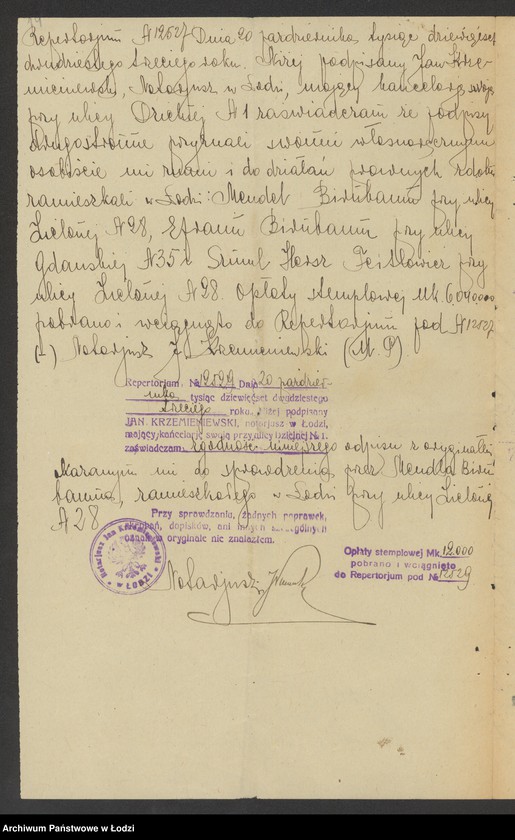 Repertorjum № 12527 Dnia 20 października, tysiąc dziewięćset
dwudziestego trzeciego roku. Niżej podpisany Jan Krze-
mieniewski, Notarjusz w Łodzi, mający kancelarję swoją
przy ulicy Dzielnej № 1 zaświadczam że podpisy
drugostronne przyznali swoimi własnoręcznymi
osobiście mi znani i do działań prawnych zdolni
zamieszkali w Łodzi: Mendel Birnbaum przy ulicy
Zielonej № 28, Efraim Birnbaum przy ulicy
Gdańskiej № 35 i Szmul Hersz przy
ulicy Zielonej № 28. Opłaty stemplowej Mk
pobrano i wciągnięto do Repertorjum pod № 12527
(-) Notarjusz J. Krzemieniewski (M.P.)
Repertorium № 12529 Dnia 20 paździer-
nika tysiąc dziewięćset dwudziestego
trzeciego roku. Niżej podpisany
JAN KRZEMIENIEWSKI, notarjusz w Łodzi,
mający kancelarję swoją przy ulicy Dzielnej № 1.
zaświadczam zgodność niniejszego odpisu z oryginałem
okazanym mi do sprawdzenia przez Mendla Birn-
bauma, zamieszkałego w Łodzi przy ulicy Zielonej
№ 28
Przy sprawdzaniu, żadnych poprawek,
skrobań, dopisków, ani innych szczególnych
oznak w oryginale nie znalazłem.
Notarjusz Jan Krzemieniewski
w ŁODZI
Opłaty stemplowej Mk. 12.000
pobrano i wciągnięto
do Repertorjum pod № 12529
Notarjusz:
Archiwum Państwowe w Łodzi